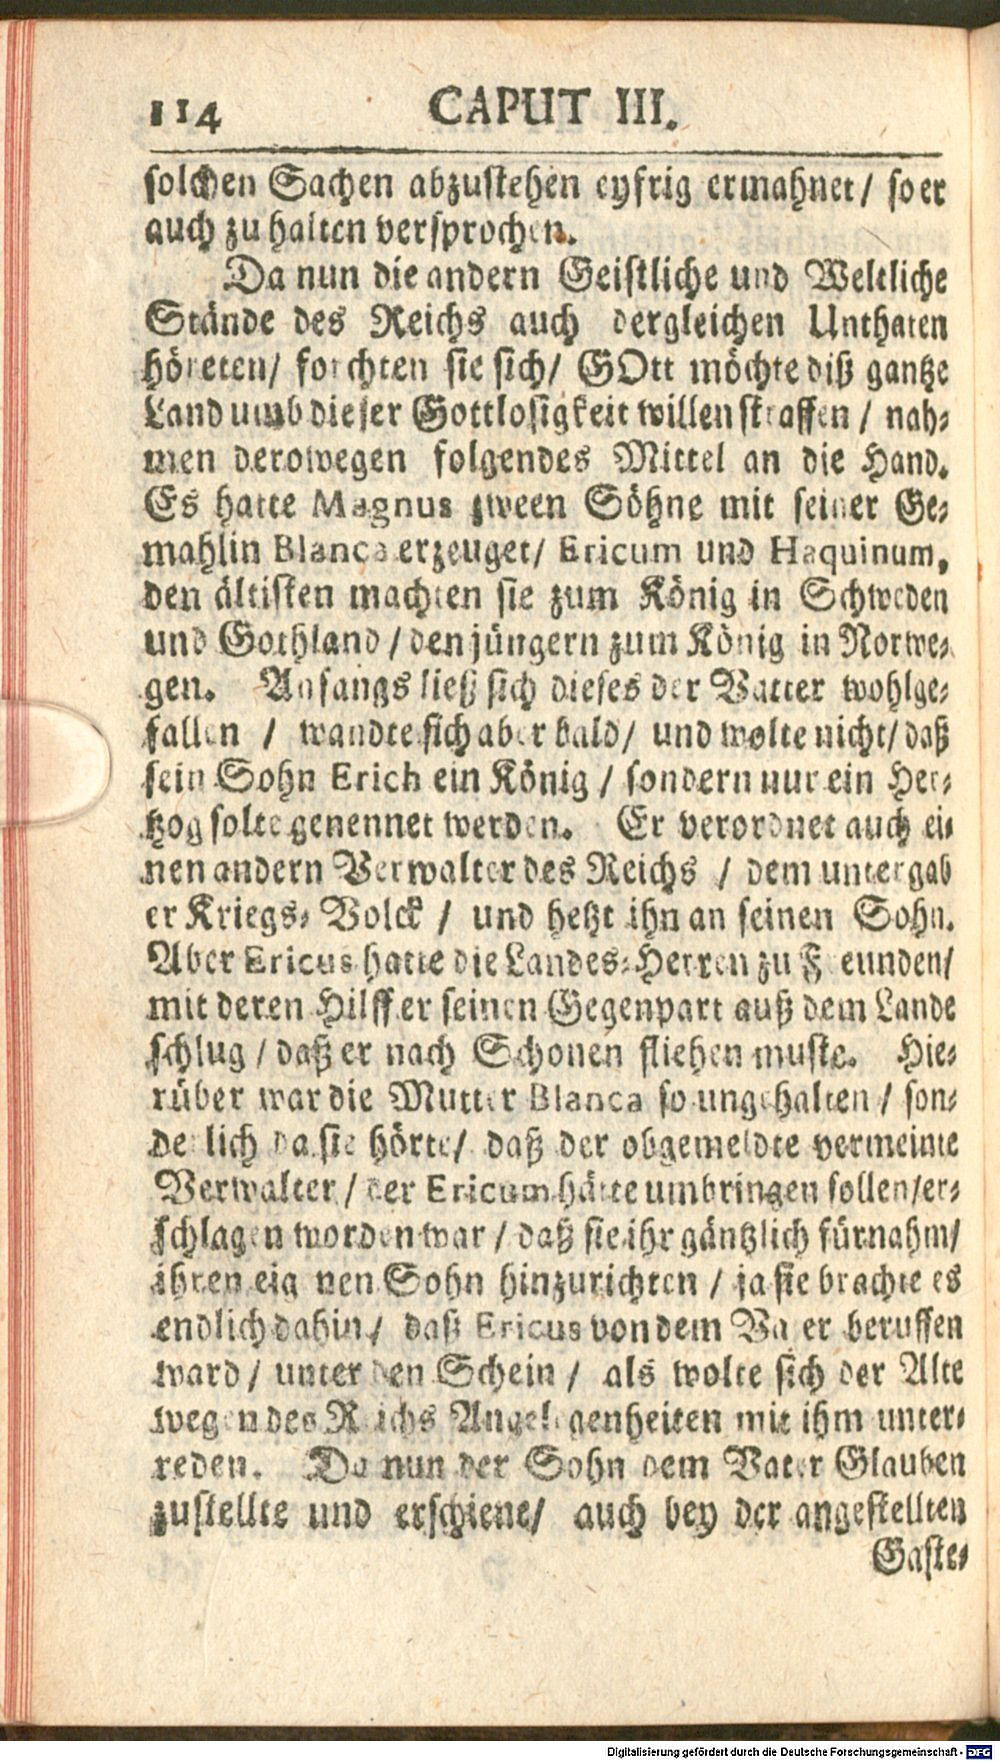 114 CAPUT III.
solchen Sachen abzustehen eyfrig ermahnet/ so er
auch zu halten versprochen.
Da nun die andern Geistliche und Weltliche
Stände des Reichs auch dergleichen Unthaten
höreten/ forchten sie sich/ GOtt möchte diß gantze
Land umb dieser Gottlosigkeit willen straffen / nah-
men derowegen folgendes Mittel an die Hand.
Es hatte Magnus zween Söhne mit seiner Ge-
mahlin Blanca erzeuget/ Ericum und Haquinum,
den ältisten machten sie zum König in Schweden
und Gothland / den jüngern zum König in Norwe-
gen. Anfangs ließ sich dieses der Vatter wohlge-
fallen / wandte sich aber bald/ und wolte nicht/ daß
sein Sohn Erich ein König / sondern nur ein Her-
tzog solte genennet werden. Er verordnet auch ei-
nen andern Verwalter des Reichs / dem untergab
er Kriegs-Volck / und hetzt ihn an seinen Sohn.
Aber Ericus hatte die Landes-Herren zu Freunden/
mit deren Hilff er seinen Gegenpart auß dem Lande
schlug / daß er nach Schonen fliehen muste. Hie-
rüber war die Mutter Blanca so ungehalten / son-
derlich da sie hörte/ daß der obgemeldte vermeinte
Verwalter / der Ericum hätte umbringen sollen/er-
schlagen worden war / daß sie ihr gäntzlich fürnahm/
ihren eignen Sohn hinzurichten / ja sie brachte es
endlich dahin / daß Ericus von dem Vater beruffen
ward / unter den Schein / als wolte sich der Alte
wegen des Reichs Angelegenheiten mit ihm unter-
reden. Da nun der Sohn dem Vater Glauben
zustellte und erschiene/ auch bey der angestellten
Gaste-
Digitalisierung gefördert durch die Deutsche Forschungsgemeinschaft - DFG